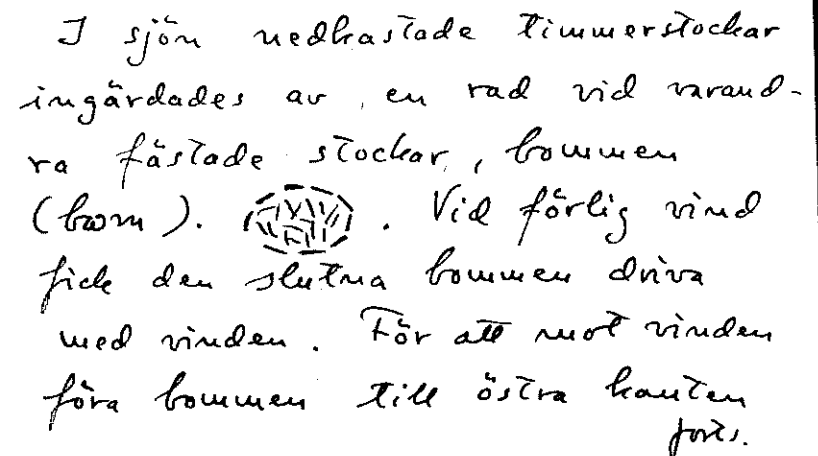 I sjön nedkastade timmerstockar
ingärdades av en rad vid varand-
ra fästade stockar, bommen
(bom). . Vid förlig vind
fick den slutna bommen driva
med vinden. För att mot vinden
föra bommen till östra kanten
forts.